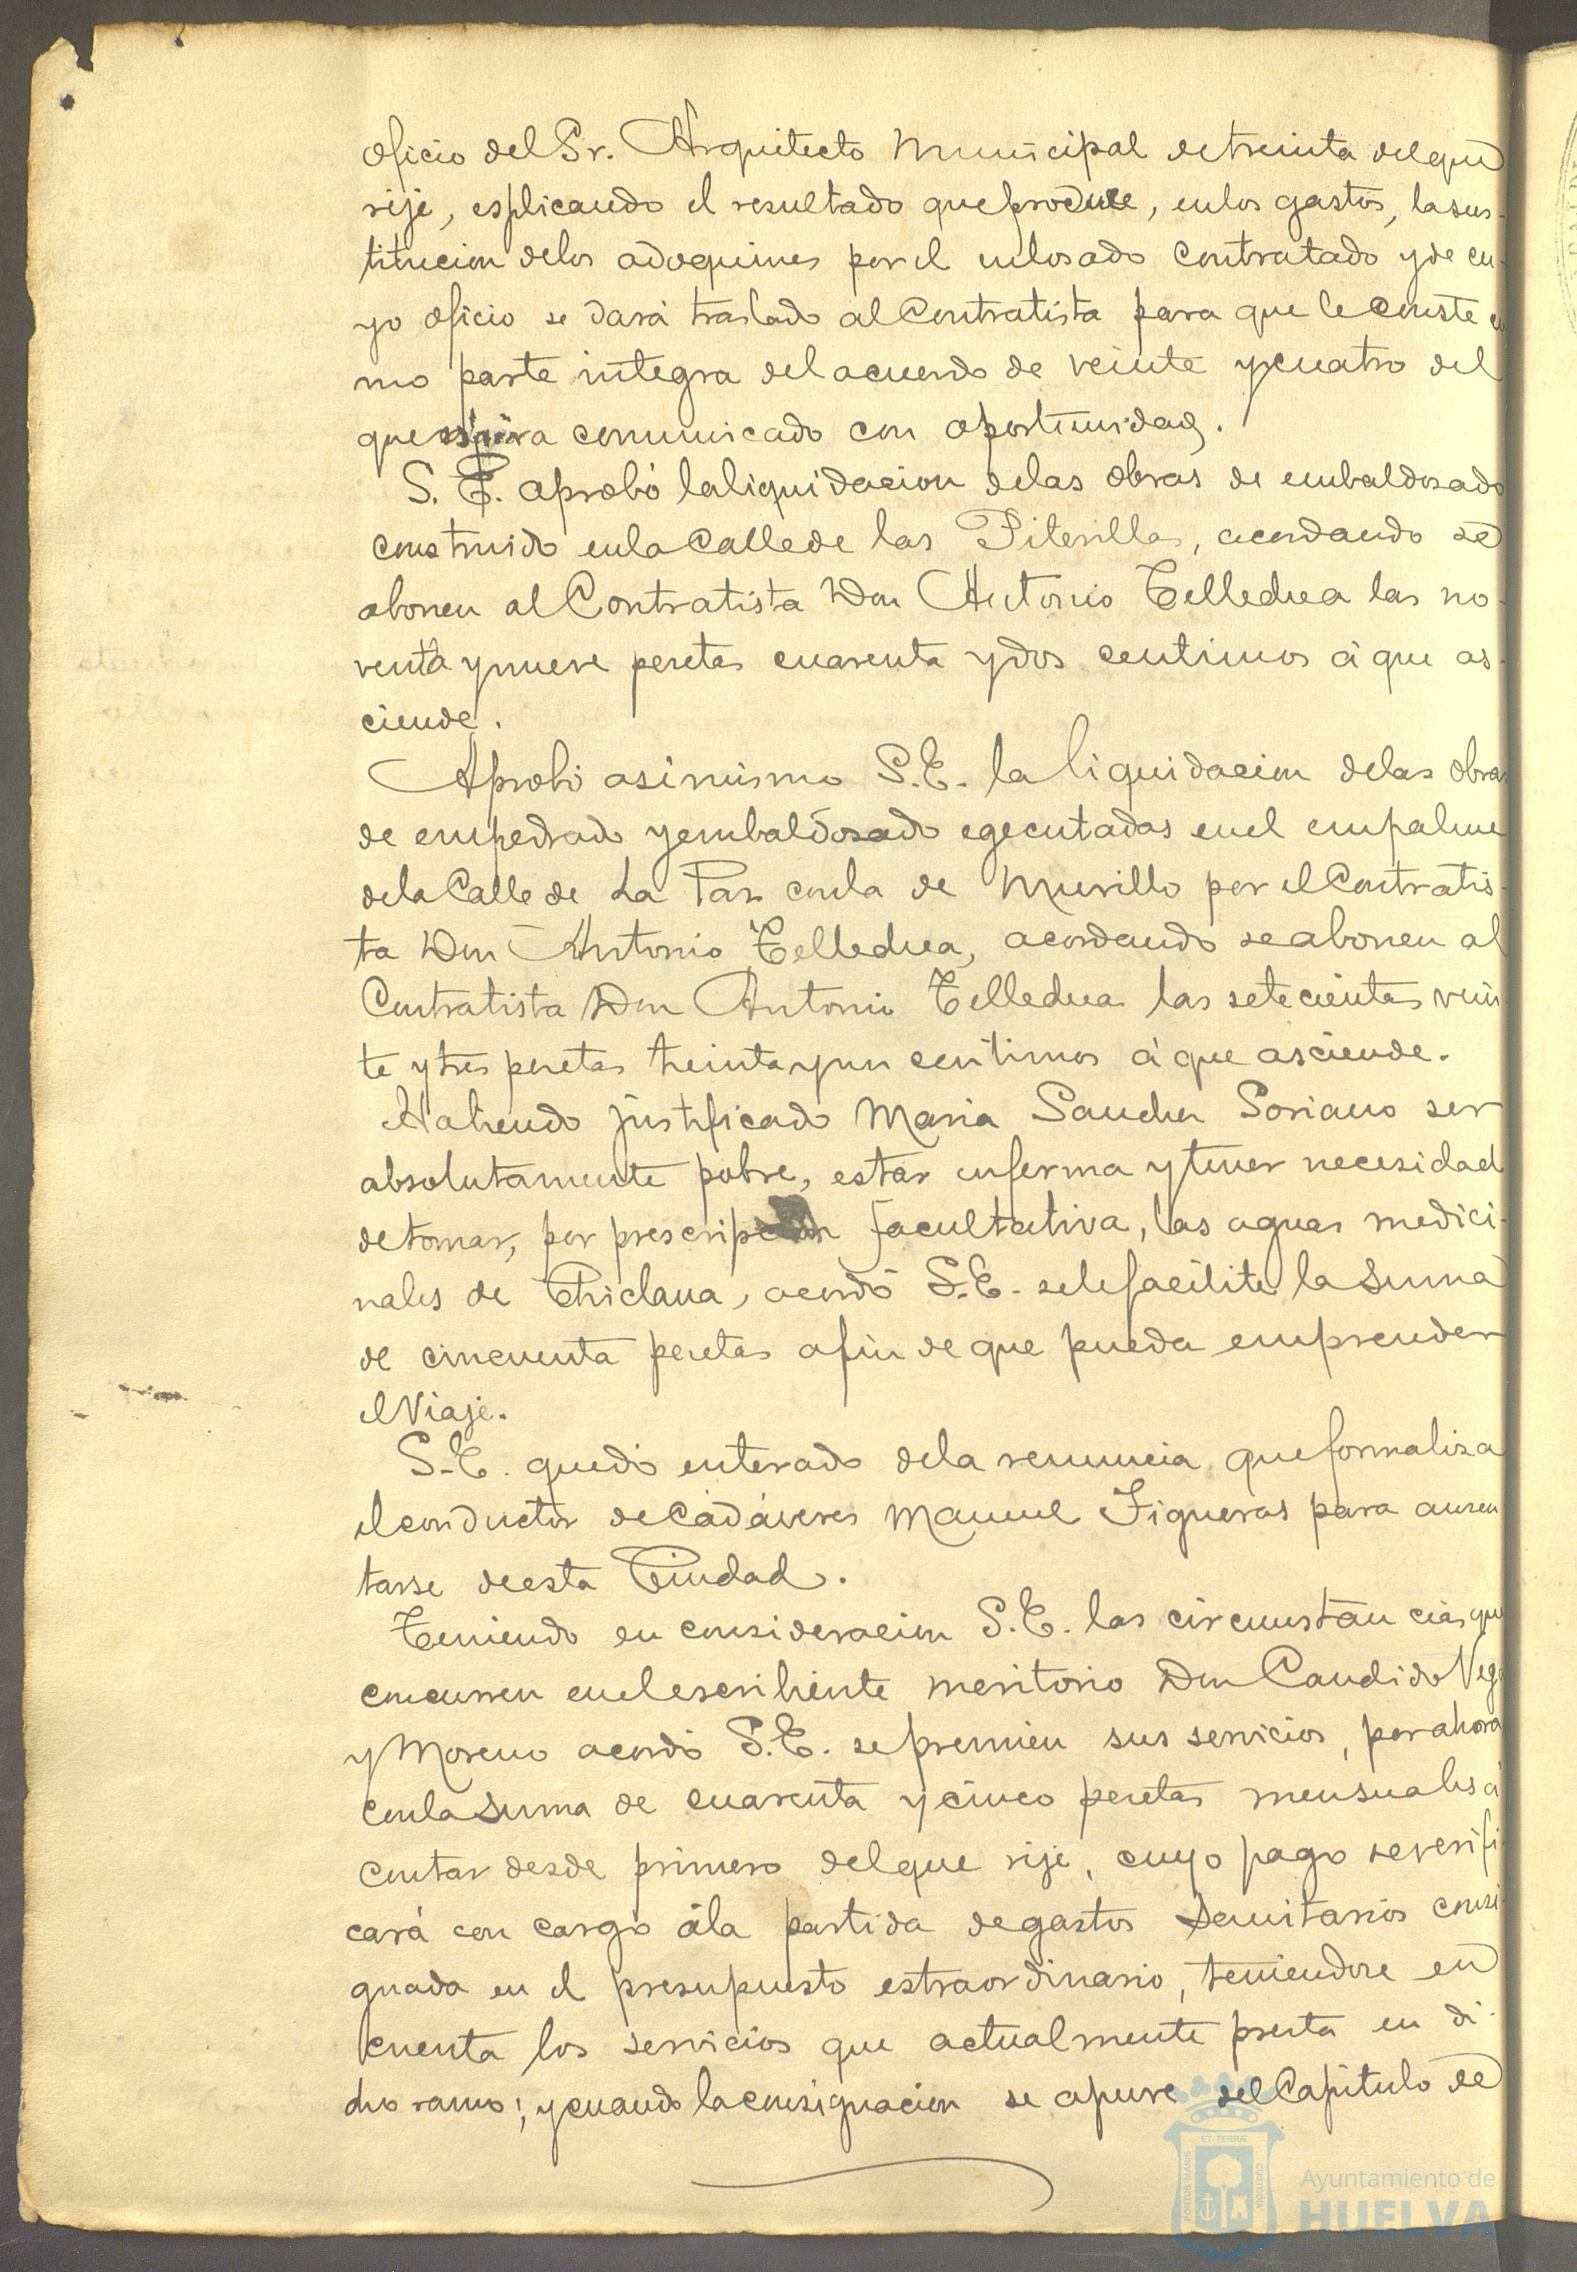 oficio del Sr. Arquitecto Municipal de treinta del que
rije, esplicando el resultado que produce, en los gastos, la sus-
titucion de los adoquines por el enlosado contratado y de cu-
yo oficio se dará traslado al Contratista para que le conste co
mo parte integra del acuerdo de veinte y cuatro del
que espira comunicado con oportunidad.
S. E. aprobó la liquidacion de las obras de embaldosado
construido en la Calle de las Piterillas, acordando se
abonen al Contratista Don Antonio Telledua las no-
venta y nueve pesetas cuarenta y dos centimos á que as-
ciende.
Aprobó asi mismo S.E. la liquidacion de las obras
de empedrado y embaldosado egecutadas en el empalme
de la Calle de La Paz con la de Murillo por el Contratis-
ta Don Antonio Telledua, acordando se abonen al
Contratista Don Antonio Telledua las setecientas vein
te y tres pesetas treinta y un centimos á que asciende.
Habiendo justificado Maria Sanchez Soriano ser
absolutamente pobre, estar enferma y tener necesidad
de tomar, por prescripcion facultativa, las aguas medici-
nales de Chiclana, acordó S.E. se le facilite la suma
de cincuenta pesetas a fin de que pueda emprender
el Viaje.
S.E. quedó enterado de la renuncia que formaliza
el conductor de Cadáveres Manuel Figueras para ausen
tarse de esta Ciudad.
Teniendo en consideracion S.E. las circunstancias que
concurren en el escribiente meritorio Don Candido Vega
y Moreno acordó S.E. se premien sus servicios, por ahora
con la suma de cuarenta y cinco pesetas mensuales á
contar desde primero del que rije, cuyo pago se verifi-
cará con cargo á la partida de gastos Sanitarios consi
gnada en el presupuesto estraordinario, teniendose en
cuenta los servicios que actualmente presta en di-
cho ramo; y cuando la consignacion se apure del Capitulo de
ET TERRÆ
PORTUS MARIS
CUSTODIA
Ayuntamiento de
HUELVA